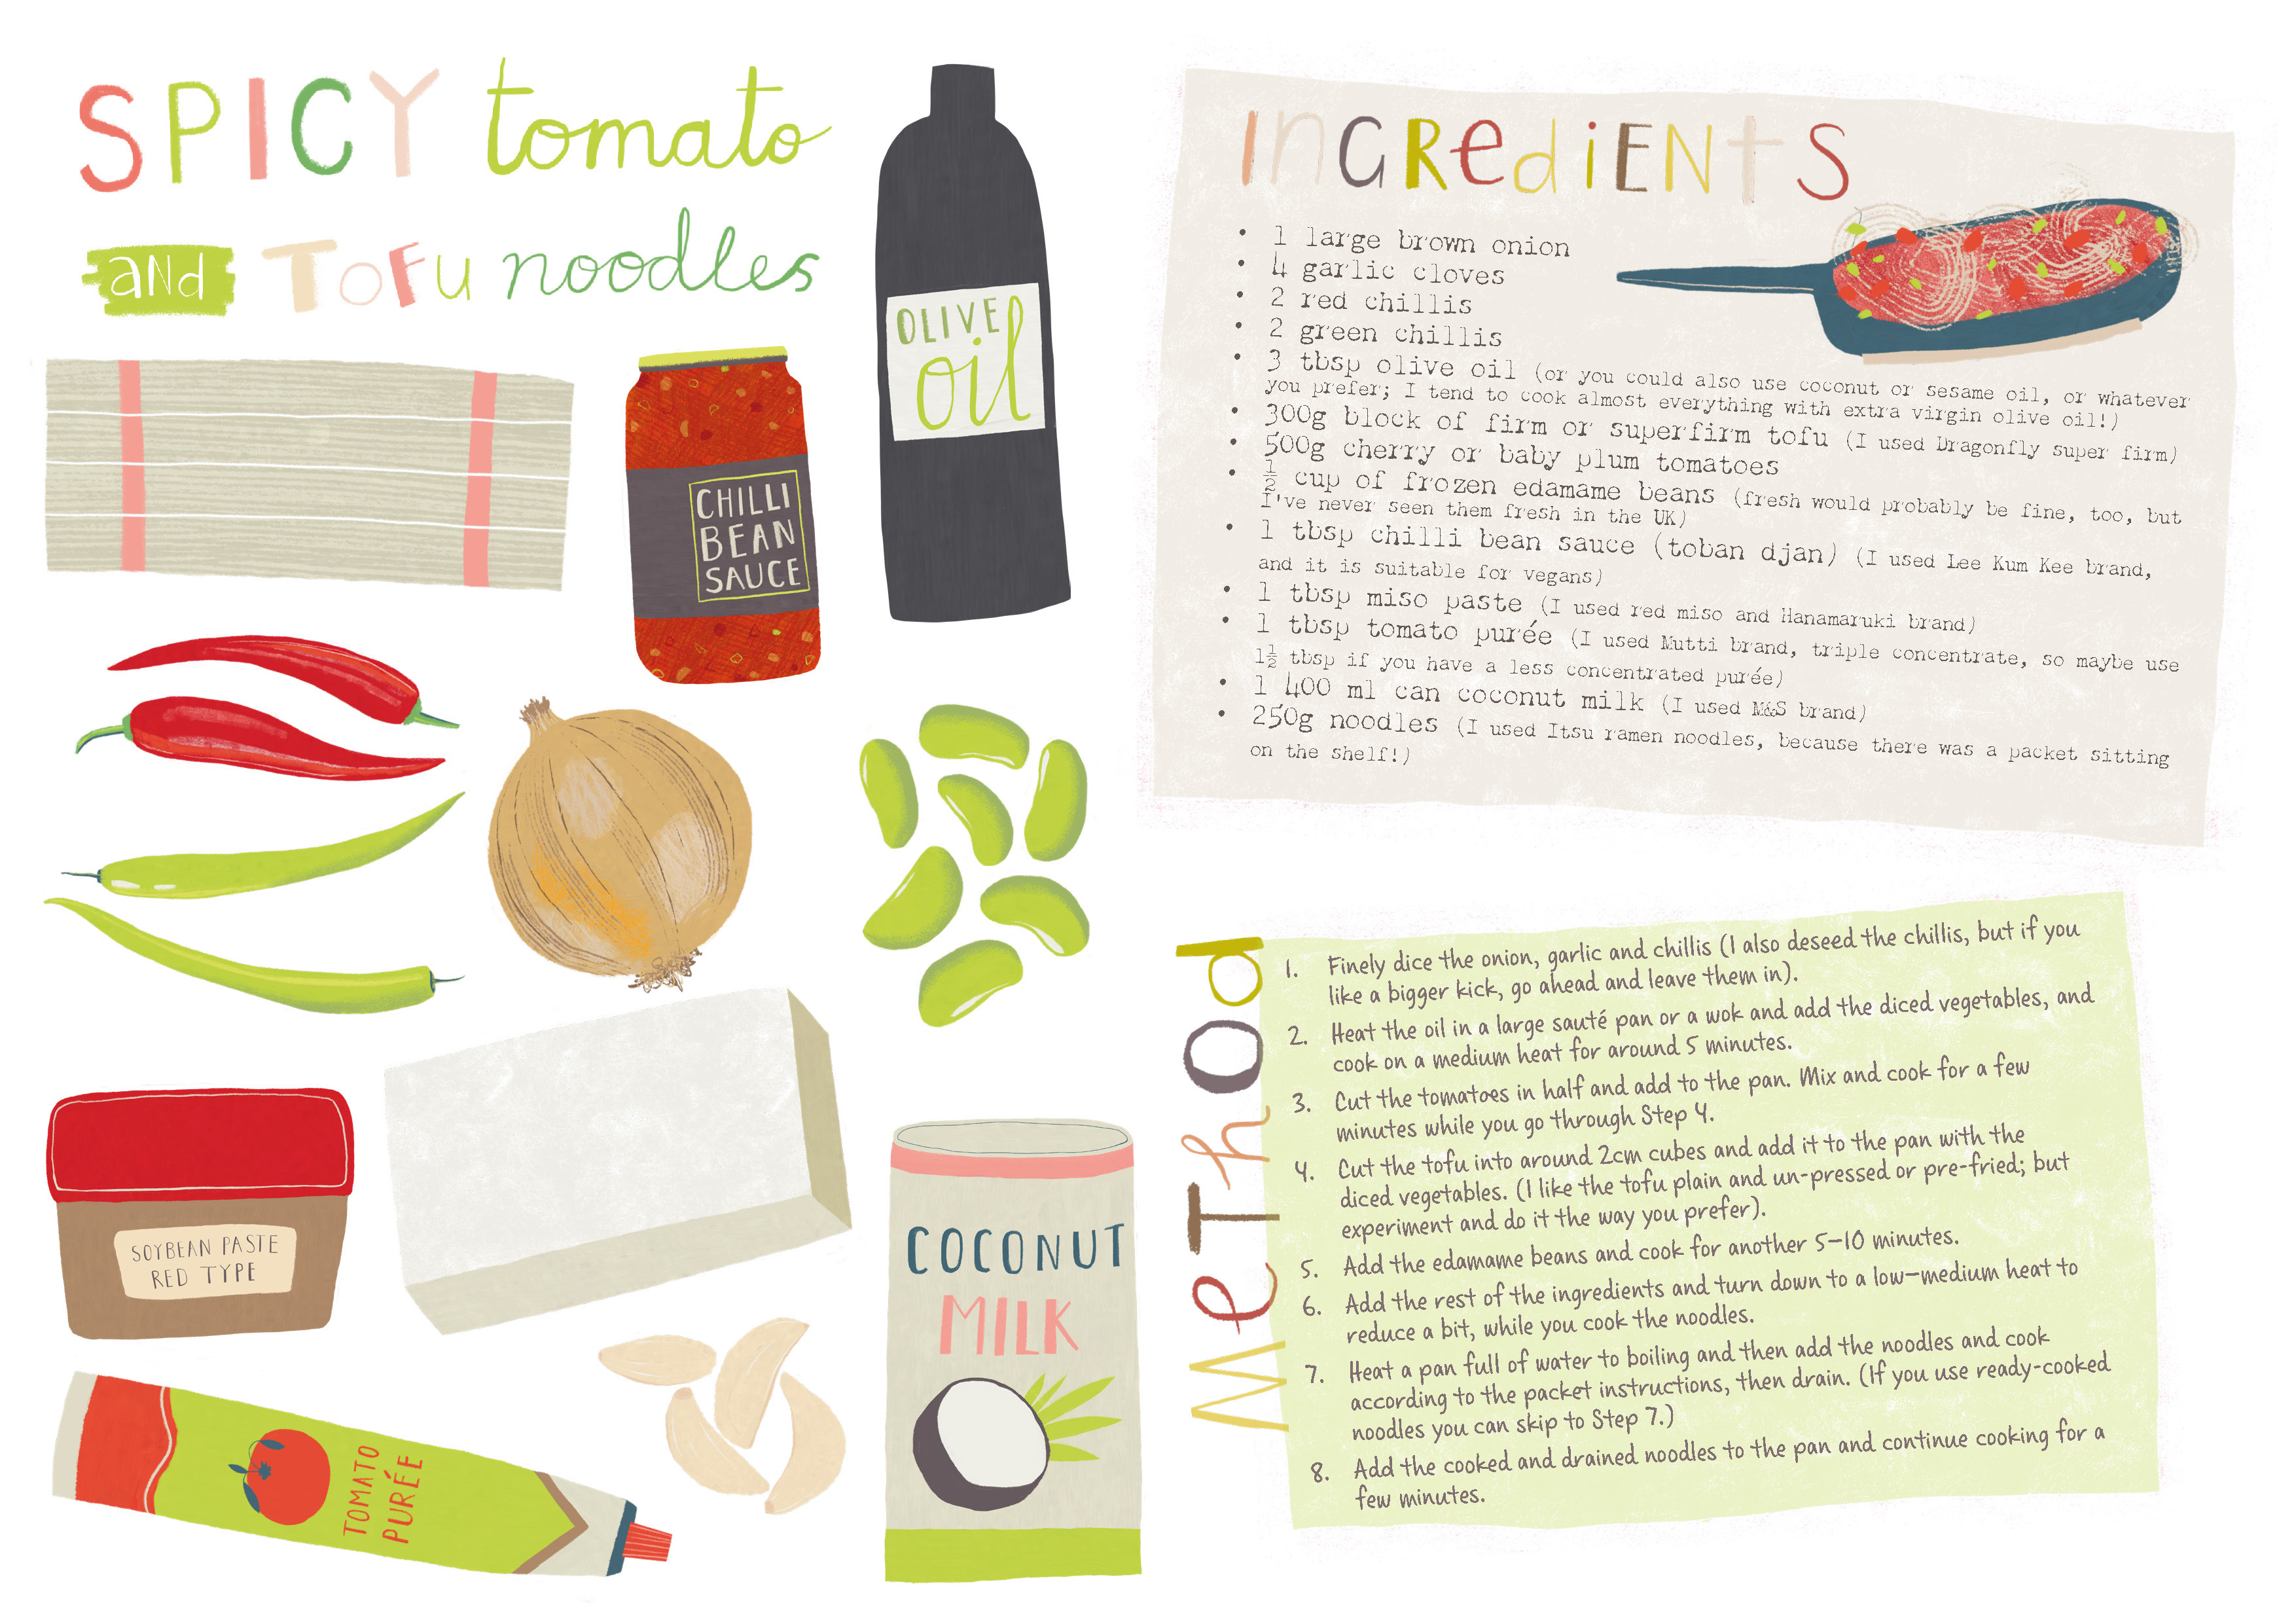 SPICY tomato
and TOFU noodles
OLIVE
oil
CHILLI
BEAN
SAUCE
SOYBEAN PASTE
RED TYPE
COCONUT
MILK
TOMATO
PURÉE
INGREDIENTS
• 1 large brown onion
• 4 garlic cloves
• 2 red chillis
• 2 green chillis
• 3 tbsp olive oil (or you could also use coconut or sesame oil, or whatever
you prefer; I tend to cook almost everything with extra virgin olive oil!)
• 300g block of firm or superfirm tofu (I used Dragonfly super firm)
• 500g cherry or baby plum tomatoes
• ½ cup of frozen edamame beans (fresh would probably be fine, too, but
I've never seen them fresh in the UK)
• 1 tbsp chilli bean sauce (toban djan) (I used Lee Kum Kee brand,
and it is suitable for vegans)
• 1 tbsp miso paste (I used red miso and Hanamaruki brand)
• 1 tbsp tomato purée (I used Mutti brand, triple concentrate, so maybe use
1½ tbsp if you have a less concentrated purée)
• 1 400 ml can coconut milk (I used M&S brand)
• 250g noodles (I used Itsu ramen noodles, because there was a packet sitting
on the shelf!)
MeThod
1. Finely dice the onion, garlic and chillis (I also deseed the chillis, but if you
like a bigger kick, go ahead and leave them in).
2. Heat the oil in a large sauté pan or a wok and add the diced vegetables, and
cook on a medium heat for around 5 minutes.
3. Cut the tomatoes in half and add to the pan. Mix and cook for a few
minutes while you go through Step 4.
4. Cut the tofu into around 2cm cubes and add it to the pan with the
diced vegetables. (I like the tofu plain and un-pressed or pre-fried; but
experiment and do it the way you prefer).
5. Add the edamame beans and cook for another 5–10 minutes.
6. Add the rest of the ingredients and turn down to a low–medium heat to
reduce a bit, while you cook the noodles.
7. Heat a pan full of water to boiling and then add the noodles and cook
according to the packet instructions, then drain. (If you use ready-cooked
noodles you can skip to Step 7.)
8. Add the cooked and drained noodles to the pan and continue cooking for a
few minutes.